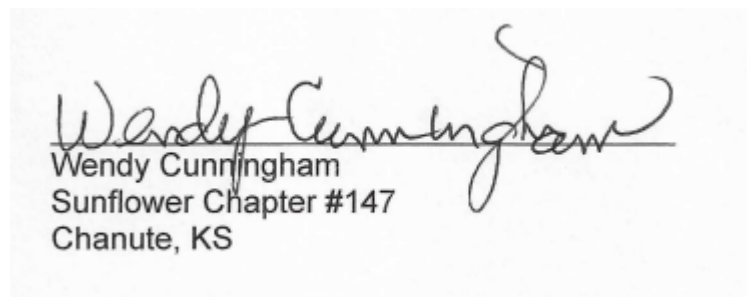 Wendy Cunningham
Wendy Cunningham
Sunflower Chapter #147
Chanute, KS